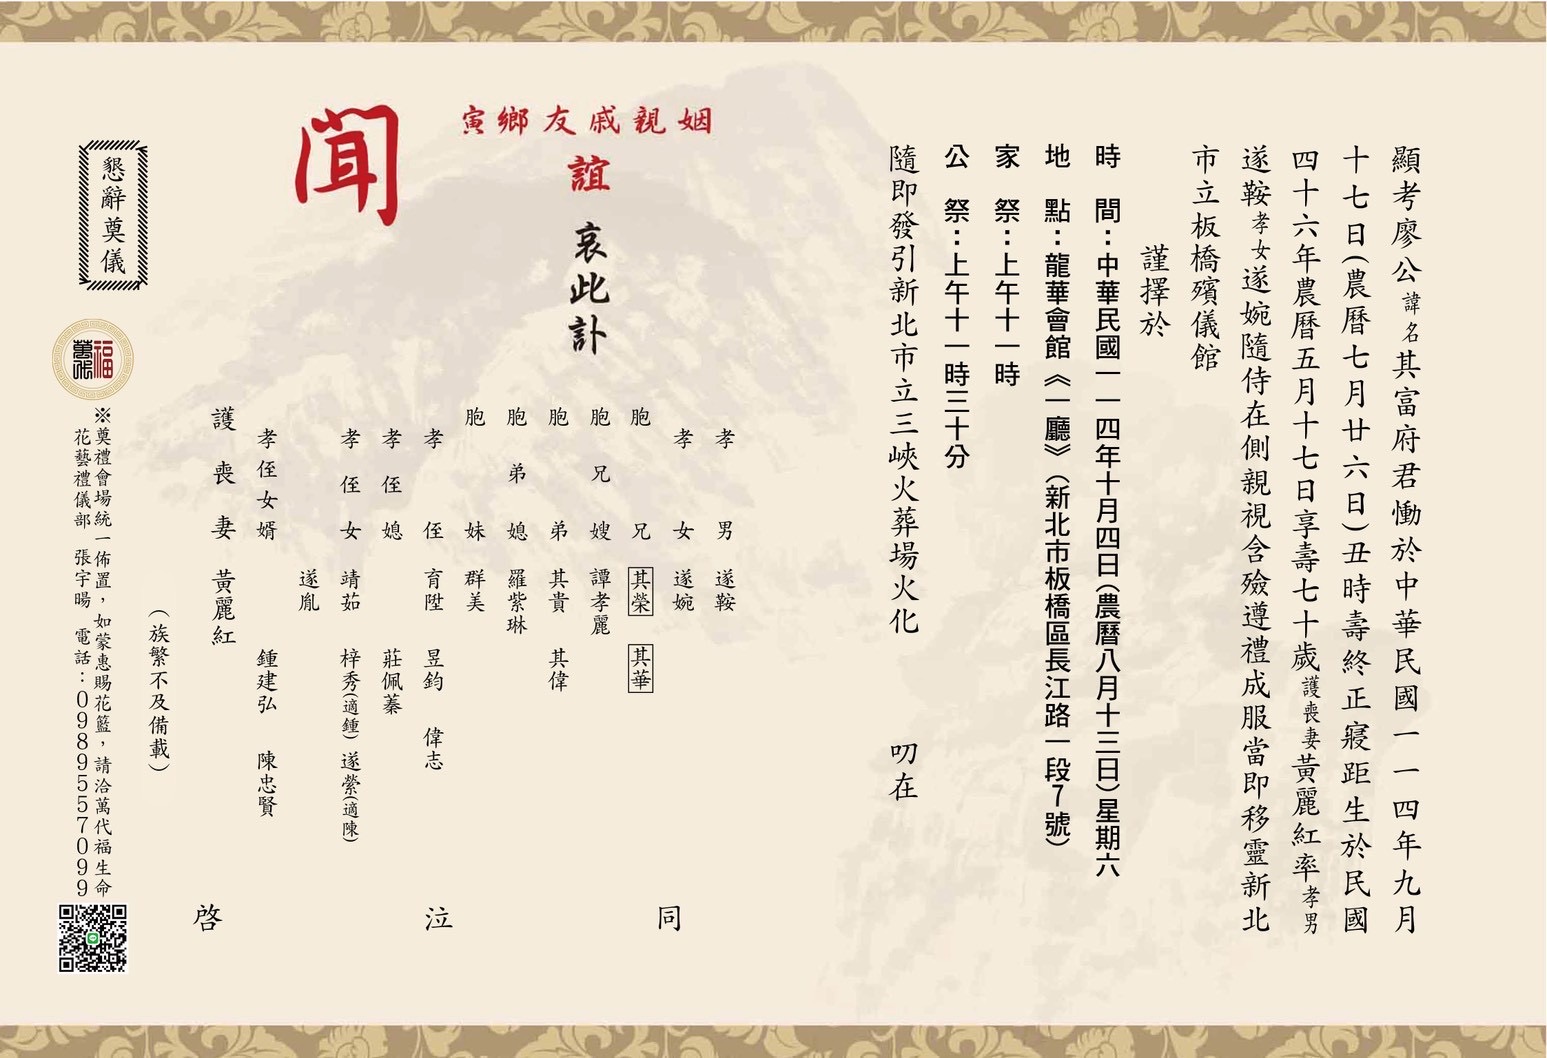 顯考廖公諱名其富府君慟於中華民國一一四年九月
十七日(農曆七月廿六日)丑時壽終正寢距生於民國
四十六年農曆五月十七日享壽七十歲護喪妻黃麗紅率孝男
遂鞍孝女遂婉隨侍在側親視含殮遵禮成服當即移靈新北
市立板橋殯儀館
謹擇於
時間：中華民國一一四年十月四日(農曆八月十三日)星期六
地點：龍華會館《一廳》(新北市板橋區長江路一段7號)
家祭：上午十一時
公祭：上午十一時三十分
隨即發引新北市立三峽火葬場火化 叨在
寅鄉友戚親姻
誼 哀此訃
聞
孝男 遂鞍
孝女 遂婉
胞兄 其榮 其華
胞兄嫂 譚孝麗
胞弟 其貴 其偉
胞弟媳 羅紫琳
胞妹 群美
孝侄 育陞 昱鈞 偉志
孝侄媳 莊佩蓁
孝侄女 靖茹 梓秀(適鍾) 遂縈(適陳)
遂胤
孝侄女婿 鍾建弘 陳忠賢
護喪妻 黃麗紅
(族繁不及備載)
同泣啓
懇辭奠儀
萬代福
※奠禮會場統一佈置，如蒙惠賜花籃，請洽萬代福生命
花藝禮儀部 張宇暘 電話：0989557099